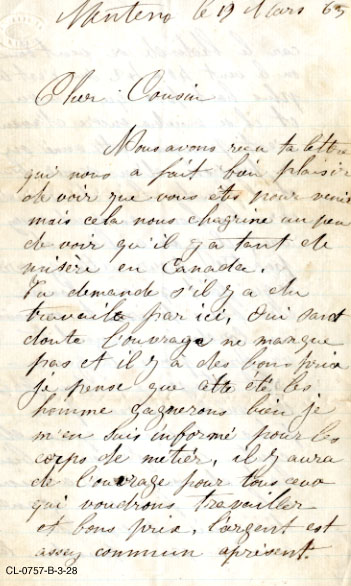 Manteno le 19 Mars 65
Cher Cousin
Nous avons reçu ta lettre
qui nous a fait bien plaisir
de voir que vous êts pour venir
mais cela nous chagrine un peu
de voir qu'il y a tant de
misère en Canada.
Tu demande s'il y a du
travaille par ici, Oui sans
doute l'ouvrage ne manque
pas et il y a des bons prix
je pense que cet été les
homme gagnerons bien je
m'en suis informé pour les
corps de métier, il y aura
de l'ouvrage pour tous ceux
qui voudrons travailler
et bons prix, l'argent est
assez commun apresent.
CL-0757-B-3-28